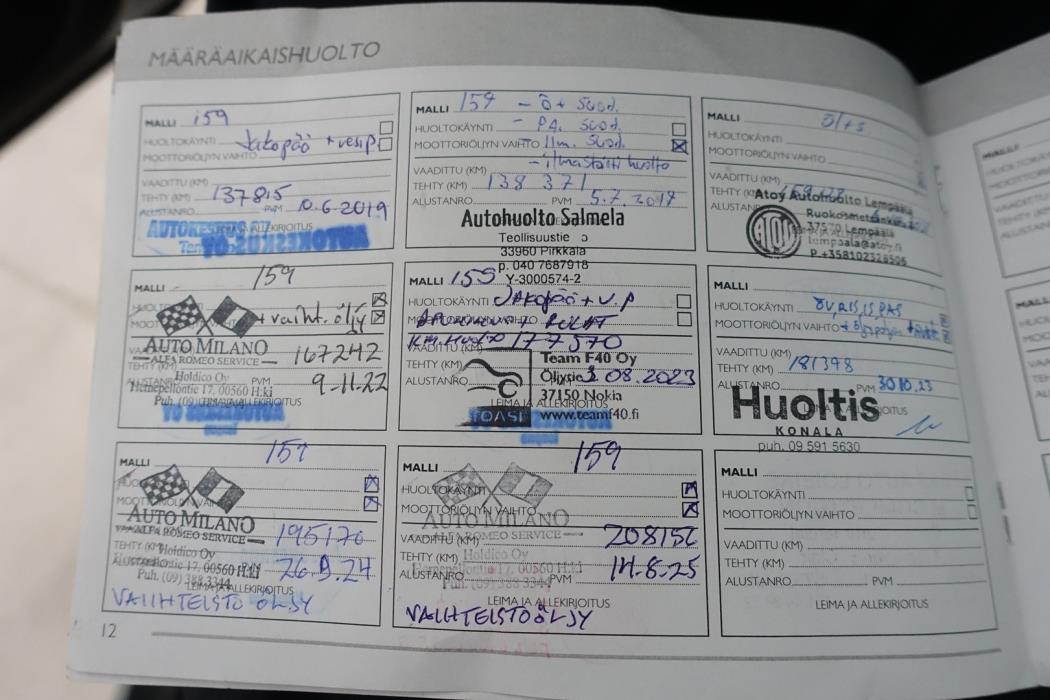 MÄÄRÄAIKAISHUOLTO
MALLI 159
HUOLTOKÄYNTI Jakopää + vesip.
MOOTTORIÖLJYN VAIHTO
VAADITTU (KM)
TEHTY (KM) 137815
ALUSTANRO PVM 10.6-2019
LEIMA JA ALLEKIRJOITUS
AUTOKESKUS OY
MALLI 159 - Ö + suod.
HUOLTOKÄYNTI - PA. suod.
MOOTTORIÖLJYN VAIHTO Ilm. suod.
- ilmastointi huolto
VAADITTU (KM)
TEHTY (KM) 138 371
ALUSTANRO PVM 5.7.2019
Autohuolto Salmela
Teollisuustie
33960 Pirkkala
p. 040 7687918
Y-3000574-2
MALLI
HUOLTOKÄYNTI
MOOTTORIÖLJYN VAIHTO
VAADITTU (KM)
TEHTY (KM)
ALUSTANRO
Atoy Autohuolto Lempäälä
ATOY
Ruokosmetsänkuja
37570 Lempäälä
lempaala@atoy.fi
P.+358102328506
159
+ vaiht. öljy
AUTO MILANO
ALFA ROMEO SERVICE
TEHTY (KM) 167242
Holdico Oy
ALUSTANRO PVM 9-11-22
Hernepellontie 17, 00560 H:ki
Puh. (09)
LEIMA JA ALLEKIRJOITUS
AUTOKESKUS OY
MALLI 159
HUOLTOKÄYNTI Jakopää + V.P
MOOTTORIÖLJYN VAIHTO
KM. Huolto 177570
VAADITTU (KM)
TEHTY (KM)
ALUSTANRO
Team F40 Oy
Öljytie 3
.08.2023
37150 Nokia
LEIMA JA ALLEKIRJOITUS
www.teamf40.fi
TOASI
MALLI
HUOLTOKÄYNTI
MOOTTORIÖLJYN VAIHTO
VAADITTU (KM)
TEHTY (KM) 181398
ALUSTANRO PVM 30.10.23
LEIMA JA ALLEKIRJOITUS
Huoltis
KONALA
puh. 09 591 5630
MALLI 159
AUTO MILANO
ALFA ROMEO SERVICE
195170
TEHTY (KM)
Holdico Oy
Hernepellontie 17, 00560 H:ki
26.9.24
Puh. (09) 388 3344
LEIMA JA ALLEKIRJOITUS
VAIHTEISTO ÖLJY
MALLI 159
HUOLTOKÄYNTI
MOOTTORIÖLJYN VAIHTO
AUTO MILANO
ALFA ROMEO SERVICE
VAADITTU (KM) 208150
TEHTY (KM)
Holdico Oy
Hernepellontie 17, 00560 H:ki
ALUSTANRO PVM 14-8-25
Puh. (09) 388 3344
LEIMA JA ALLEKIRJOITUS
VAIHTEISTOÖLJY
MALLI
HUOLTOKÄYNTI
MOOTTORIÖLJYN VAIHTO
VAADITTU (KM)
TEHTY (KM)
ALUSTANRO PVM
LEIMA JA ALLEKIRJOITUS
12